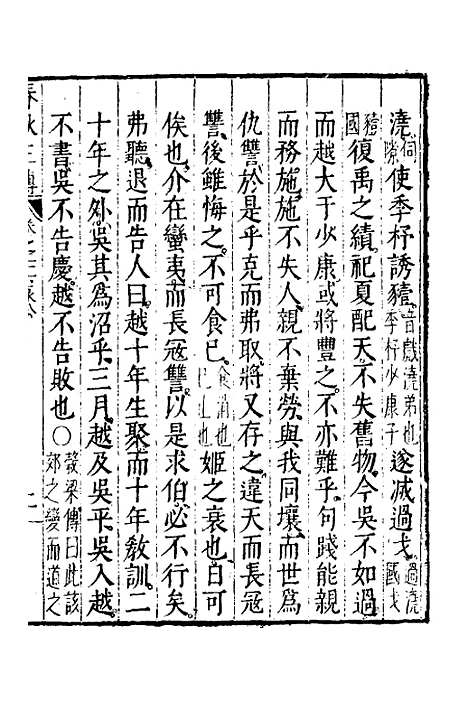 澆伺隙使季杼誘豷音戲澆弟也季杼少康子遂滅過戈過澆國戈
豷國復禹之績祀夏配天不失舊物今吳不如過
而越大于少康或將豐之不亦難乎句踐能親
而務施施不失人親不棄勞與我同壤而世為
仇讐於是乎克而弗取將又存之違天而長寇
讐後雖悔之不可食已食消也已止也姬之衰也日可
俟也介在蠻夷而長寇讐以是求伯必不行矣
弗聽退而告人曰越十年生聚而十年教訓二
十年之外吳其為沼乎三月越及吳平吳入越
不書吳不告慶越不告敗也○穀梁傳曰此該郊之變而道之
春秋三傳